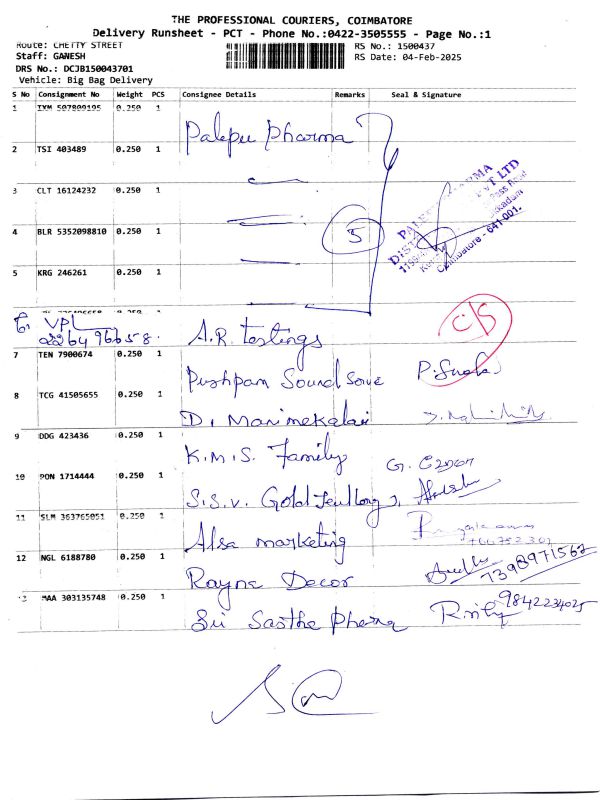 THE PROFESSIONAL COURIERS, COIMBATORE
Delivery Runsheet - PCT - Phone No.:0422-3505555 - Page No.:1
Route: CHETTY STREET
RS No.: 1500437
Staff: GANESH
RS Date: 04-Feb-2025
DRS No.: DCJB150043701
Vehicle: Big Bag Delivery
S No Consignment No Weight PCS Consignee Details Remarks Seal & Signature
1 TXM 507809195 0.250 1 Palepu Pharma
2 TSI 403489 0.250 1
3 CLT 16124232 0.250 1
4 BLR 5352098810 0.250 1 5
Coimbatore - 641-001.
5 KRG 246261 0.250 1
6. VPL
2264 96658. A.R. Testings
C/S
7 TEN 7900674 0.250 1 Pushpam Sound
8 TCG 41505655 0.250 1 D. Manimekalai
9 DDG 423436 0.250 1 K.M.S. Family
10 PON 1714444 0.250 1 S.S.V. Gold
11 SLM 363765051 0.250 1 Alsa marketing
12 NGL 6188780 0.250 1 Rayna Decor
7398971562
13 MAA 303135748 0.250 1 Sri Sastha Pharma
9842234025